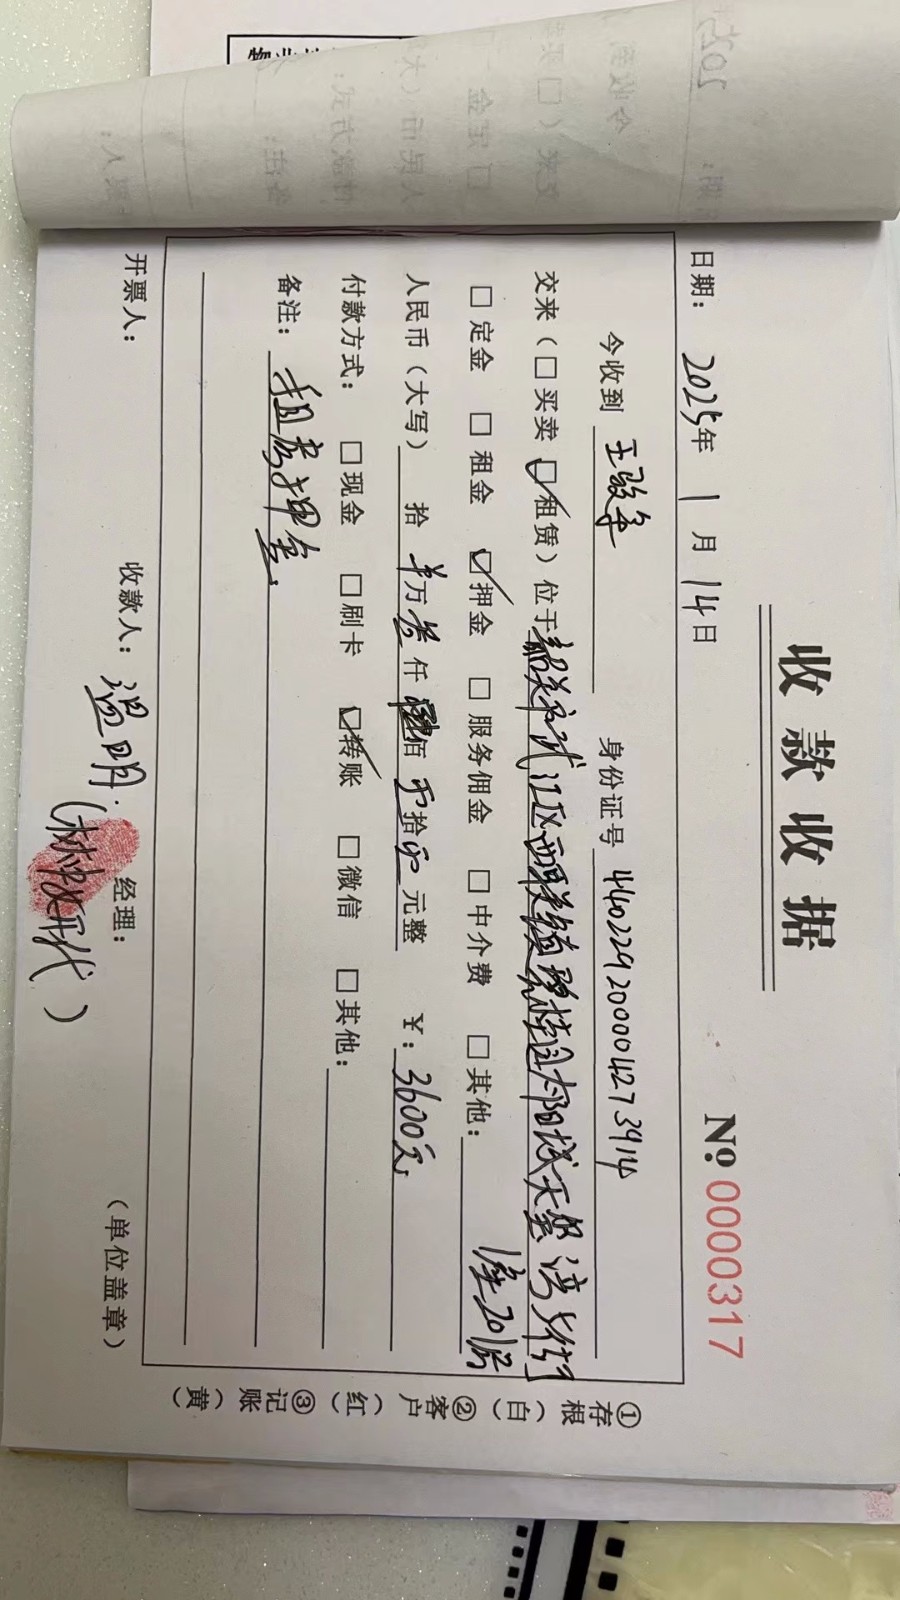 收款收据
No 0000317
日期： 2025年 1月 14日
今收到 王骏 身份证号 440229200004273914
交来（□买卖 ☑租赁）位于韶关市武江区西联镇碧桂园太阳城天玺湾5街
1座201房
□定金 □租金 ☑押金 □服务佣金 □中介费 □其他：
人民币（大写） 拾 万叁仟陆佰零拾零元整 ¥：3600元
付款方式： □现金 □刷卡 ☑转账 □微信 □其他：
备注： 租房押金
开票人： 收款人：温明 经理： （单位盖章）
①存根（白）②客户（红）③记账（黄）